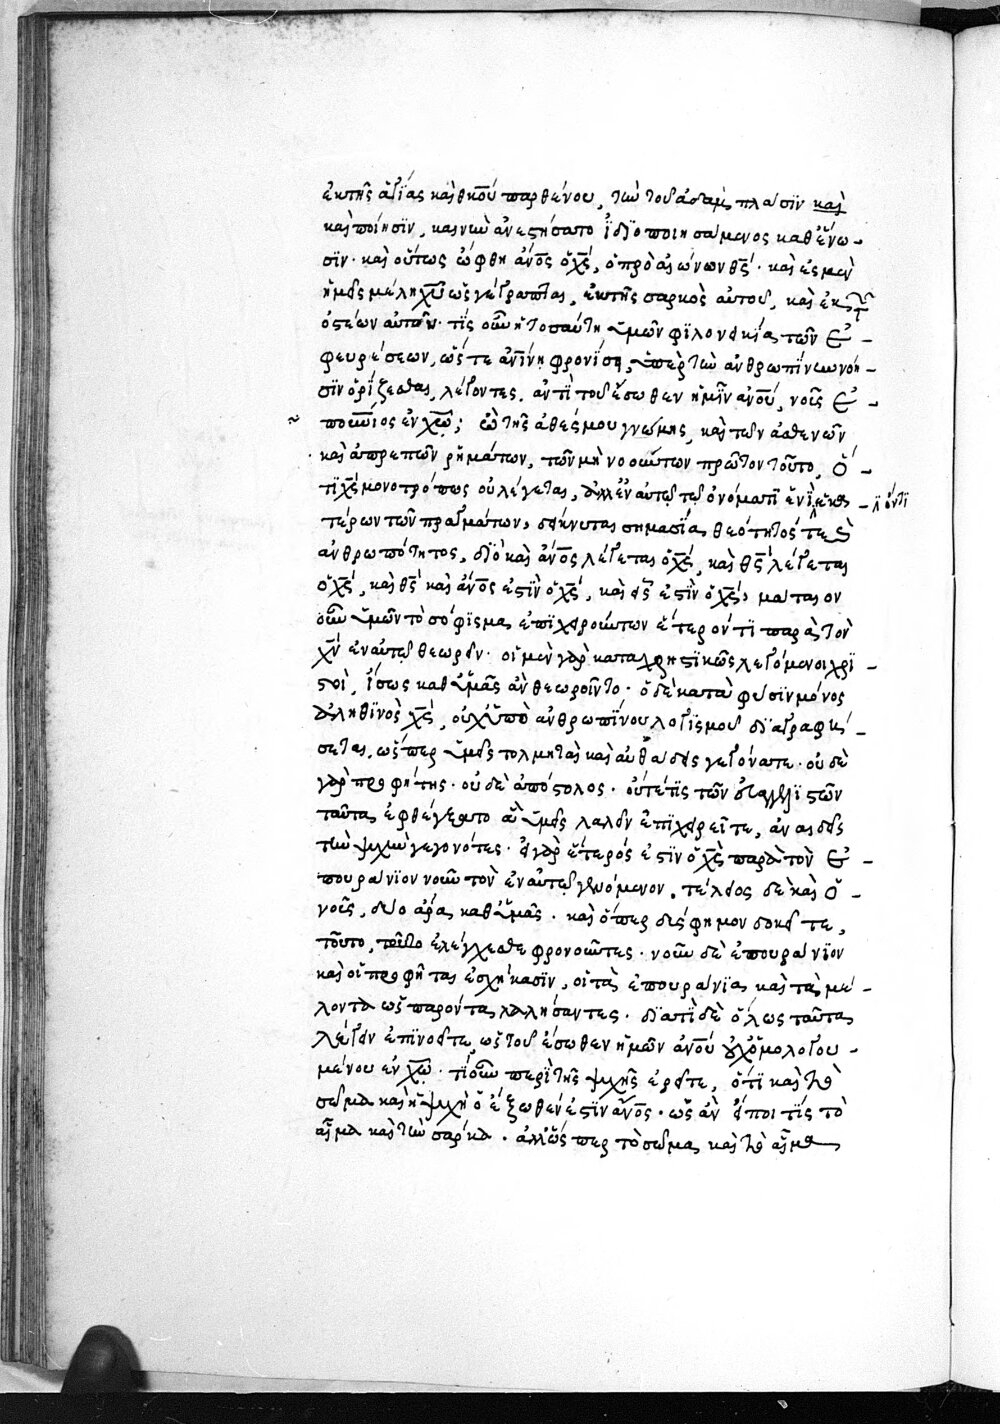 ἐκ τῆς ἁγίας καὶ θκοῦ παρθένου, τὴν τοῦ ἀδὰμ πλάσϊν καὶ
καὶ ποίησϊν, καινὴν ἀνεστήσατο ἰδϊοποιησάμενος καθ' ἕνω-
σϊν· καὶ οὕτως ὤφθη ἄνος ὁ χς, ὁ πρὸ αἰώνων θς· καὶ ἐσμὲν
ἡμεῖς μέλη χυ ὡς γέγραπται, ἐκ τῆς σαρκὸς αὐτοῦ, καὶ ἐκ τῶν
ὀστέων αὐτοῦ· τίς οὖν ἡ τοσαύτη ὑμῶν φϊλονεικία τῶν ἐ-
φευρέσεων, ὥστε ἀνϊ φρονήσει, ὑπὲρ τὴν ἀνθρωπίνην νόη-
σϊν ὁρίζεσθαι, λέγοντες, ἀντὶ τοῦ ἔσωθεν ἡμῖν ἀνου, νοῦς ἐ-
πουράνιος ἐν χω; ὢ τῆς ἀθέσμου γνώμης, καὶ τῶν ἀσθενῶν
καὶ ἀπρεπῶν ῥημάτων, τῶν μὴ νοούντων πρῶτον τοῦτο, ὅ-
τϊ χς μονοτρόπως οὐ λέγεται, ἀλλ' ἐν αὐτῷ τῷ ὀνόματϊ ἑνὶ ὄντϊ ἑκα-
τέρων τῶν πραγμάτων, δείκνυται σημασία θεότητός τε καὶ
ἀνθρωπότητος, δϊὸ καὶ ἄνος λέγεται ὁ χς, καὶ θς λέγεται
ὁ χς, καὶ θς καὶ ἄνος ἐστὶν ὁ χς, καὶ εἷς ἐστὶν ὁ χς, μάταιον
οὖν ὑμῶν τὸ σόφϊσμα, ἐπϊχειρούντων ἕτερόν τϊ παρὰ τὸν
χν ἐν αὐτῷ θεωρεῖν· οἱ μὲν γὰρ καταχρηστϊκῶς λεγόμενοι χρϊ-
στοὶ, ἴσως καθ' ὑμᾶς ἀνθεωροῖντο· ὁ δὲ κατὰ φύσϊν μόνος
ἀληθϊνὸς χς, οὐχ ὑπὸ ἀνθρωπίνου λογϊσμοῦ δϊαγραφή-
σεται, ὥσπερ ὑμεῖς τολμηταὶ καὶ αὐθάδεις γεγόνατε· οὐδὲ
γὰρ προφήτης· οὐδὲ ἀπόστολος· οὔτέ τϊς τῶν εὐαγγελϊστῶν
ταῦτα ἐφθέγξατο ἃ ὑμεῖς λαλεῖν ἐπϊχειρεῖτε, ἀναιδεῖς
τὴν ψυχὴν γεγονότες· εἰ γὰρ ἕτερός ἐστϊν ὁ χς παρὰ τὸν ἐ-
πουράνϊον νοῦν τὸν ἐν αὐτῷ γενόμενον, τέλειος δὲ καὶ ὁ
νοῦς, δύο ἄρα καθ' ὑμᾶς· καὶ ὅπερ δύσφημον δοκεῖτε,
τοῦτο, ἐλέγχεσθε φρονοῦντες· νοῦν δὲ ἐπουράνϊον
καὶ οἱ προφῆται ἐσχήκασϊν, οἱ τὰ ἐπουράνϊα καὶ τὰ μέ-
λοντα ὡς παρόντα λαλήσαντες· δϊατὶ δὲ ὅλως ταῦτα
λέγειν ἐπϊνοεῖτε, ὡς τοῦ ἔσωθεν ἡμῶν ἀνου οὐχ ὁμολογου-
μένου ἐν χω· τί οὖν περὶ τῆς ψυχῆς ἐρεῖτε, ὅτϊ καὶ τὸ
σῶμα καὶ ἡ ψυχὴ ὁ ἔξωθέν ἐστϊν ἄνος· ὡς ἂν εἴποι τϊς τὸ
αἷμα καὶ τὴν σάρκα· ἀλλ' ὥσπερ τὸ σῶμα, καὶ τὸ αἷμα